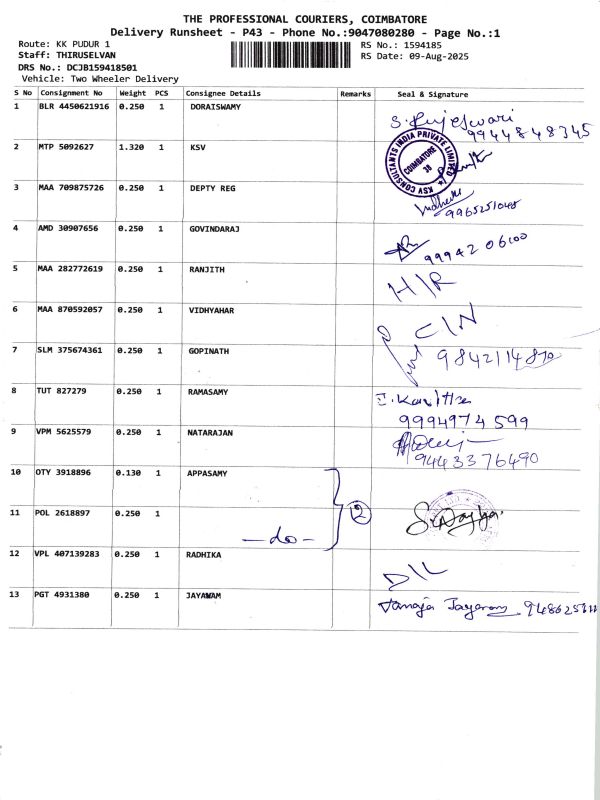 THE PROFESSIONAL COURIERS, COIMBATORE
Delivery Runsheet - P43 - Phone No.:9047080280 - Page No.:1
Route: KK PUDUR 1 RS No.: 1594185
Staff: THIRUSELVAN RS Date: 09-Aug-2025
DRS No.: DCJB159418501
Vehicle: Two Wheeler Delivery
S No Consignment No Weight PCS Consignee Details Remarks Seal & Signature
1 BLR 4450621916 0.250 1 DORAISWAMY
9944848345
2 MTP 5092627 1.320 1 KSV
KSV CONSULTANTS INDIA PRIVATE LIMITED
COIMBATORE
38
3 MAA 709875726 0.250 1 DEPTY REG
9965251045
4 AMD 30907656 0.250 1 GOVINDARAJ
9994206100
5 MAA 282772619 0.250 1 RANJITH
H/R
6 MAA 870592057 0.250 1 VIDHYAHAR
C/N
7 SLM 375674361 0.250 1 GOPINATH
8 TUT 827279 0.250 1 RAMASAMY
9994974599
9 VPM 5625579 0.250 1 NATARAJAN
9443376490
10 OTY 3918896 0.130 1 APPASAMY
2
11 POL 2618897 0.250 1
—do—
12 VPL 407139283 0.250 1 RADHIKA
D/L
13 PGT 4931380 0.250 1 JAYAWAM
Jayaram